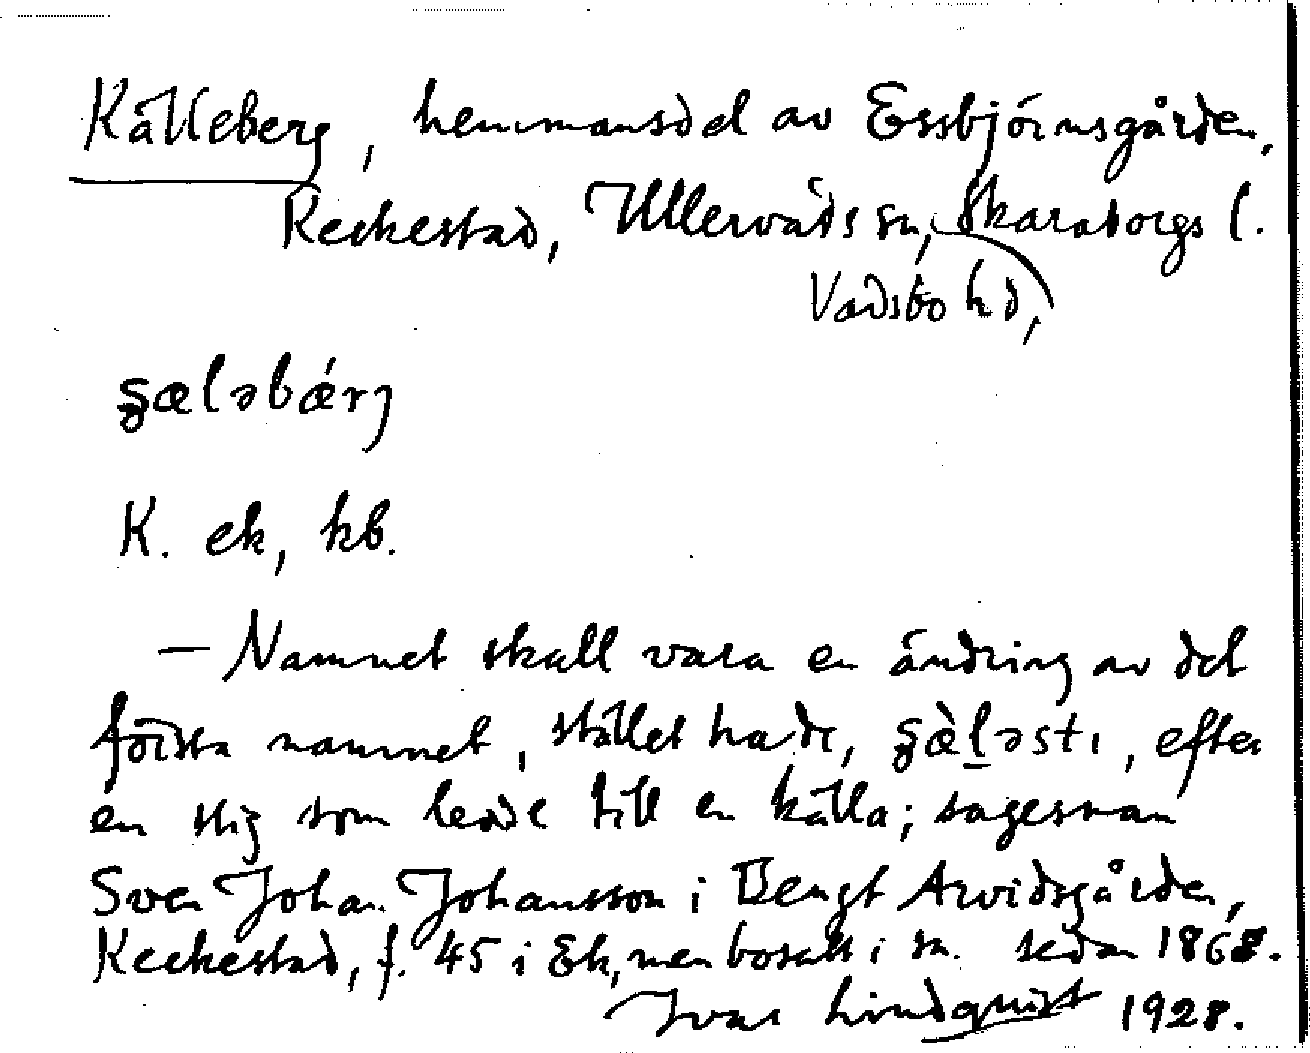 Källeberg, hemmansdel av Essbjörnsgården,
Keckestad, Ullervads sn, Skaraborgs l.
Vadsbo hd,
ʂæləbǽrj
K. ek, kb.
— Namnet skall vara en ändring av det
första namnet, stället hade, ʂæ̀ḻəstı, efter
en stig som ledde till en källa; sagesman
Sven Johan Johansson i Bengt Arvidsgården,
Keckestad, f. 45 i Ek, men bosatt i sn. sedan 1868.
Ivar Lindquist 1928.